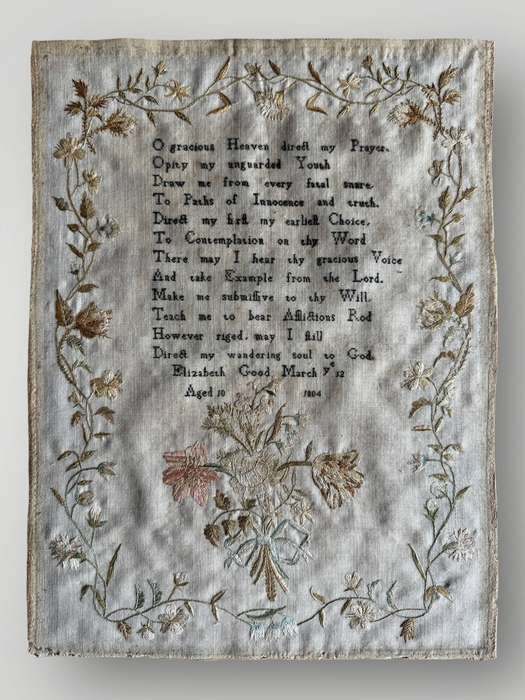 O gracious Heaven direct my Prayer.
Opity my unguarded Youth
Draw me from every fatal snare.
To Paths of Innocence and truth.
Direct my first my earliest Choice,
To Contemplation on thy Word
There may I hear thy gracious Voice
And take Example from the Lord.
Make me submiſsive to thy Will
Teach me to bear Afflictions Rod
However riged, may I ſtill
Direct my wandering soul to God.
Elizabeth Good March yᵉ 12
Aged 10 1804